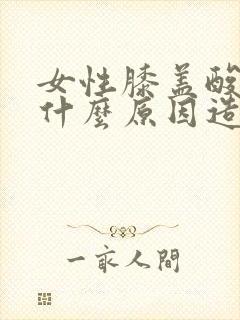 女性膝盖酸
什麼原因造
一亩人間